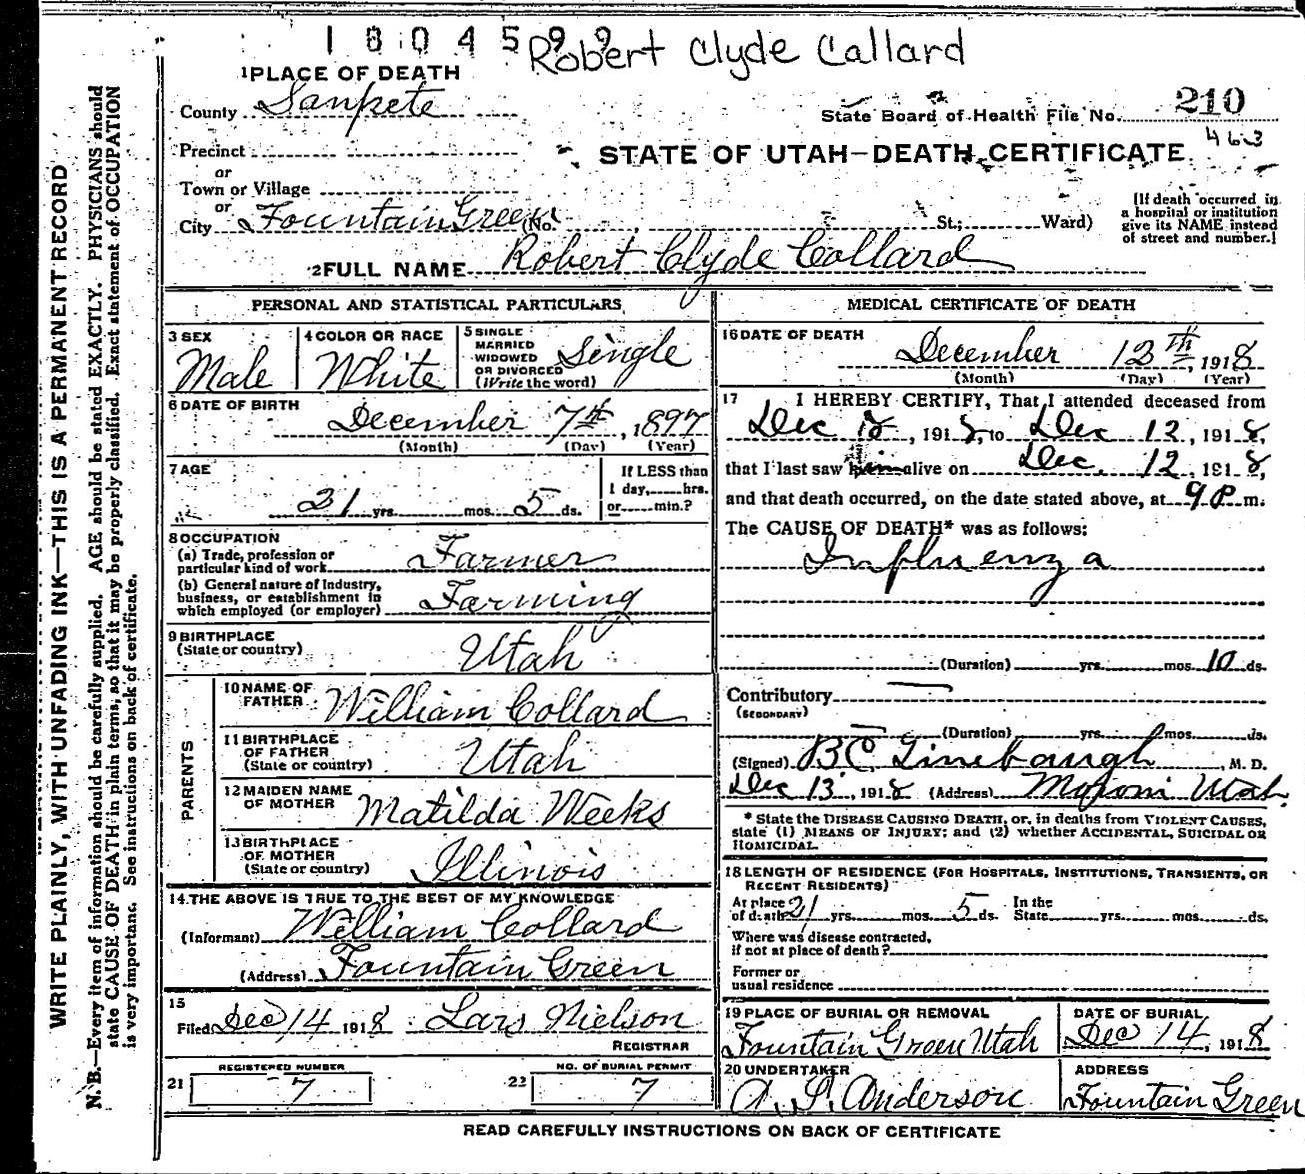 180459 9 Robert Clyde Callard
1 PLACE OF DEATH
County Sanpete
State Board of Health File No. 210
463
Precinct
or
Town or Village
or
City Fountain Green (No. St; Ward)
STATE OF UTAH—DEATH CERTIFICATE
[If death occurred in
a hospital or institution
give its NAME instead
of street and number.]
2 FULL NAME Robert Clyde Collard
PERSONAL AND STATISTICAL PARTICULARS
3 SEX
Male
4 COLOR OR RACE
White
5 SINGLE
MARRIED
WIDOWED
OR DIVORCED
(Write the word)
Single
6 DATE OF BIRTH
December 7th, 1897
(Month) (Day) (Year)
7 AGE
21 yrs. mos. 5 ds.
If LESS than
1 day, hrs.
or min.?
8 OCCUPATION
(a) Trade, profession or
particular kind of work Farmer
(b) General nature of Industry,
business, or establishment in
which employed (or employer) Farming
9 BIRTHPLACE
(State or country) Utah
PARENTS
10 NAME OF
FATHER William Collard
11 BIRTHPLACE
OF FATHER
(State or country) Utah
12 MAIDEN NAME
OF MOTHER Matilda Weeks
13 BIRTHPLACE
OF MOTHER
(State or country) Illinois
14 THE ABOVE IS TRUE TO THE BEST OF MY KNOWLEDGE
(Informant) William Collard
(Address) Fountain Green
15
Filed Dec 14 1918 Lars Nielson
REGISTRAR
21 REGISTERED NUMBER
7
22 NO. OF BURIAL PERMIT
7
MEDICAL CERTIFICATE OF DEATH
16 DATE OF DEATH
December 12th, 1918
(Month) (Day) (Year)
17 I HEREBY CERTIFY, That I attended deceased from
Dec 12, 1918, to Dec 12, 1918,
that I last saw him alive on Dec. 12, 1918,
and that death occurred, on the date stated above, at 9 P. m.
The CAUSE OF DEATH* was as follows:
Influenza
(Duration) yrs. mos. 10 ds.
Contributory
(SECONDARY)
(Duration) yrs. mos. ds.
(Signed) B C Linebaugh, M. D.
Dec 13, 1918 (Address) Moroni Utah
* State the DISEASE CAUSING DEATH, or, in deaths from VIOLENT CAUSES,
state (1) MEANS OF INJURY; and (2) whether ACCIDENTAL, SUICIDAL OR
HOMICIDAL.
18 LENGTH OF RESIDENCE (FOR HOSPITALS, INSTITUTIONS, TRANSIENTS, OR
RECENT RESIDENTS)
At place
of death 21 yrs. mos. 5 ds. In the
State yrs. mos. ds.
Where was disease contracted,
if not at place of death?
Former or
usual residence
19 PLACE OF BURIAL OR REMOVAL
Fountain Green Utah
DATE OF BURIAL
Dec 14, 1918
20 UNDERTAKER
A. Anderson
ADDRESS
Fountain Green
READ CAREFULLY INSTRUCTIONS ON BACK OF CERTIFICATE
WRITE PLAINLY, WITH UNFADING INK—THIS IS A PERMANENT RECORD
N. B.—Every item of information should be carefully supplied. AGE should be stated EXACTLY. PHYSICIANS should
state CAUSE OF DEATH in plain terms, so that it may be properly classified. Exact statement of OCCUPATION
is very important. See instructions on back of certificate.